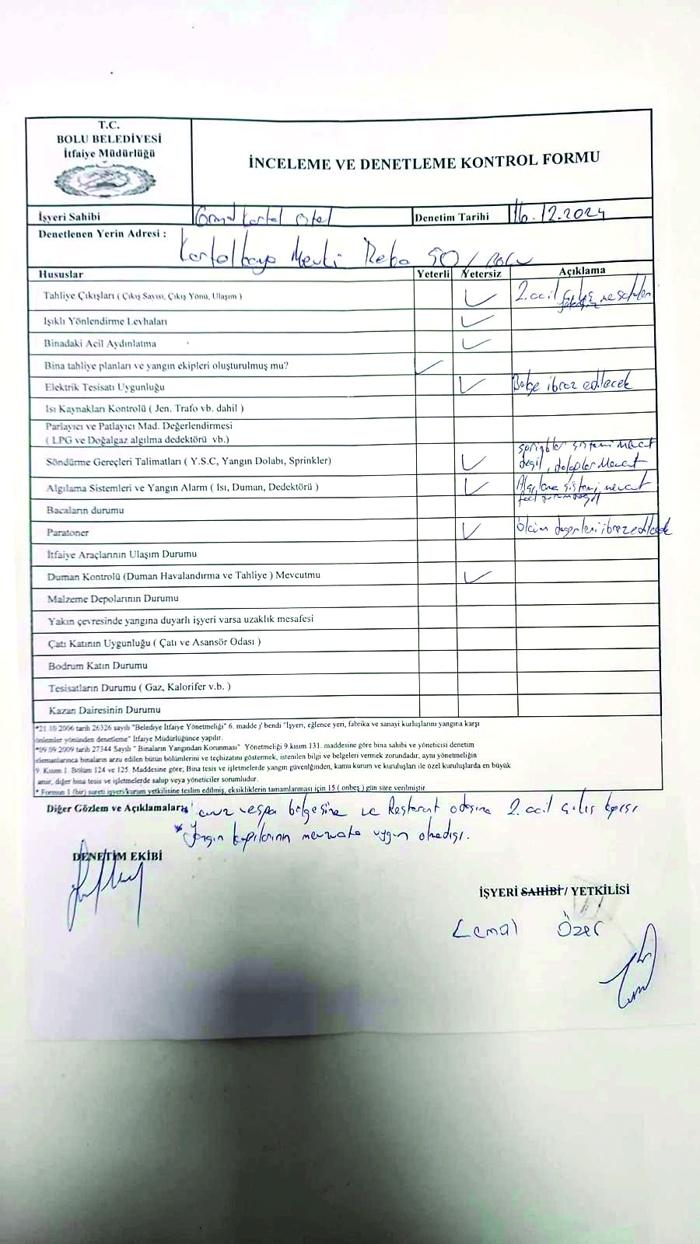 T.C.
BOLU BELEDİYESİ
İtfaiye Müdürlüğü
İNCELEME VE DENETLEME KONTROL FORMU
İşyeri Sahibi Grand Kartal Otel Denetim Tarihi 16.12.2024
Denetlenen Yerin Adresi : Kartalkaya Mevki
Hususlar Yeterli Yetersiz Açıklama
Tahliye Çıkışları ( Çıkış Sayısı, Çıkış Yönü, Ulaşım ) ✓ 2. acil çıkış
Işıklı Yönlendirme Levhaları ✓
Binadaki Acil Aydınlatma ✓
Bina tahliye planları ve yangın ekipleri oluşturulmuş mu? ✓
Elektrik Tesisatı Uygunluğu ✓ Belge ibraz edilecek
Isı Kaynakları Kontrolü ( Jen. Trafo vb. dahil )
Parlayıcı ve Patlayıcı Mad. Değerlendirmesi
( LPG ve Doğalgaz algılma dedektörü vb.)
Söndürme Gereçleri Talimatları ( Y.S.C, Yangın Dolabı, Sprinkler) ✓ sistemi mevcut
değil, dolaplar Mevcut
Algılama Sistemleri ve Yangın Alarm ( Isı, Duman, Dedektörü ) ✓ Algılama sistemi mevcut
Bacaların durumu
Paratoner ✓ ölçüm değerleri ibraz edilecek
İtfaiye Araçlarının Ulaşım Durumu
Duman Kontrolü (Duman Havalandırma ve Tahliye ) Mevcutmu ✓
Malzeme Depolarının Durumu
Yakın çevresinde yangına duyarlı işyeri varsa uzaklık mesafesi
Çatı Katının Uygunluğu ( Çatı ve Asansör Odası )
Bodrum Katın Durumu
Tesisatların Durumu ( Gaz, Kalorifer v.b. )
Kazan Dairesinin Durumu
*21.10.2006 tarih 26326 sayılı "Belediye İtfaiye Yönetmeliği" 6. madde j bendi "İşyeri, eğlence yeri, fabrika ve sanayi kuruluşlarını yangına karşı
önlemler yönünden denetleme" İtfaiye Müdürlüğünce yapılır.
*09.09.2009 tarih 27344 Sayılı " Binaların Yangından Korunması" Yönetmeliği 9.kısım 131. maddesine göre bina sahibi ve yöneticisi denetim
elemanlarınca binaların arzu edilen bütün bölümlerini ve teçhizatını göstermek, istenilen bilgi ve belgeleri vermek zorundadır, aynı yönetmeliğin
9. Kısım 1. Bölüm 124 ve 125. Maddesine göre; Bina tesis ve işletmelerde yangın güvenliğinden, kamu kurum ve kuruluşları ile özel kuruluşlarda en büyük
amir, diğer bina tesis ve işletmelerde sahip veya yöneticiler sorumludur.
* Formun 1 (bir) sureti işyeri/kurum yetkilisine teslim edilmiş, eksikliklerin tamamlanması için 15 ( onbeş ) gün süre verilmiştir.
Diğer Gözlem ve Açıklamalar: ve Restorant 2. acil çıkış kapısı
* Yangın kapılarının mevzuata uygun olmadığı.
DENETİM EKİBİ
İŞYERİ SAHİBİ / YETKİLİSİ
Cemal Özer